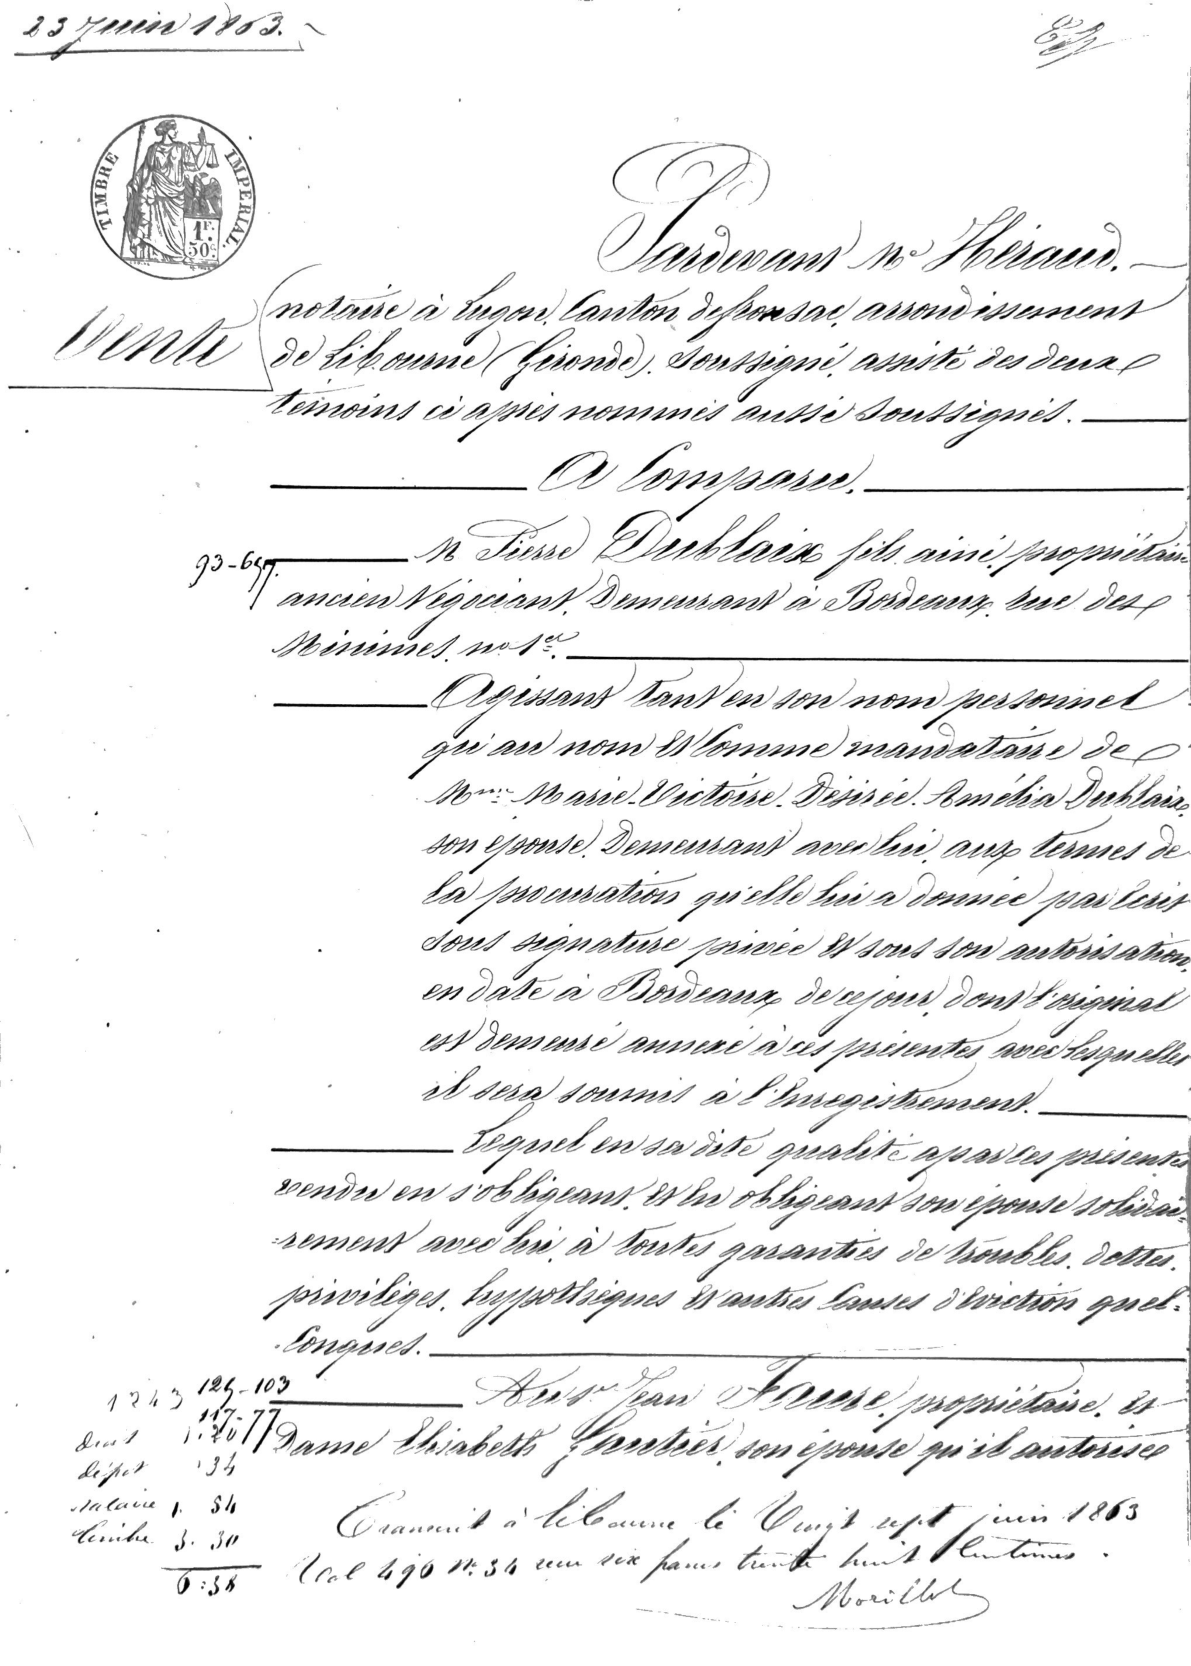 23 Juin 1863.
TIMBRE IMPERIAL.
1F.
50c.
Pardevant Me Héraud.
Vente
notaire à Lugon, Canton de fronsac, arrondissement
de Libourne (Gironde), Soussigné, assisté des deux
témoins ci après nommés aussi soussignés.
A Comparu.
M Pierre Dublaix fils ainé, propriétaire
93-657.
ancien Négociant, Demeurant à Bordeaux, rue des
Minimes, no 1er.
Agissant tant en son nom personnel
qu'au nom et Comme mandataire de
Mme Marie-Victoire-Désirée-Amélia Dublaix,
son épouse, Demeurant avec lui, aux termes de
la procuration qu'elle lui a donnée par Ecrit
sous signature privée et sous son autorisation,
en date à Bordeaux de ce jour, dont l'original
est demeuré annexé à ces présentes avec lesquelles
il sera soumis à l'Enregistrement.
Lequel en sa dite qualité a par ces présentes
vendu en s'obligeant, et en obligeant son épouse solidai-
-rement avec lui, à toutes garanties de troubles, dettes,
privilèges, hypothèques et autres Causes d'éviction quel-
-Conques.
1243 129-103
Au sr Jean Faure, propriétaire, et
117-77
droit
Dame Elisabeth Gautier, son épouse qu'il autorise
dépot 34
salaire 1. 54
timbre 3. 30
6:38
Transcrit à Libourne le Vingt sept juin 1863
Vol 496 no. 34 reçu six francs trente huit Centimes.
Morillot